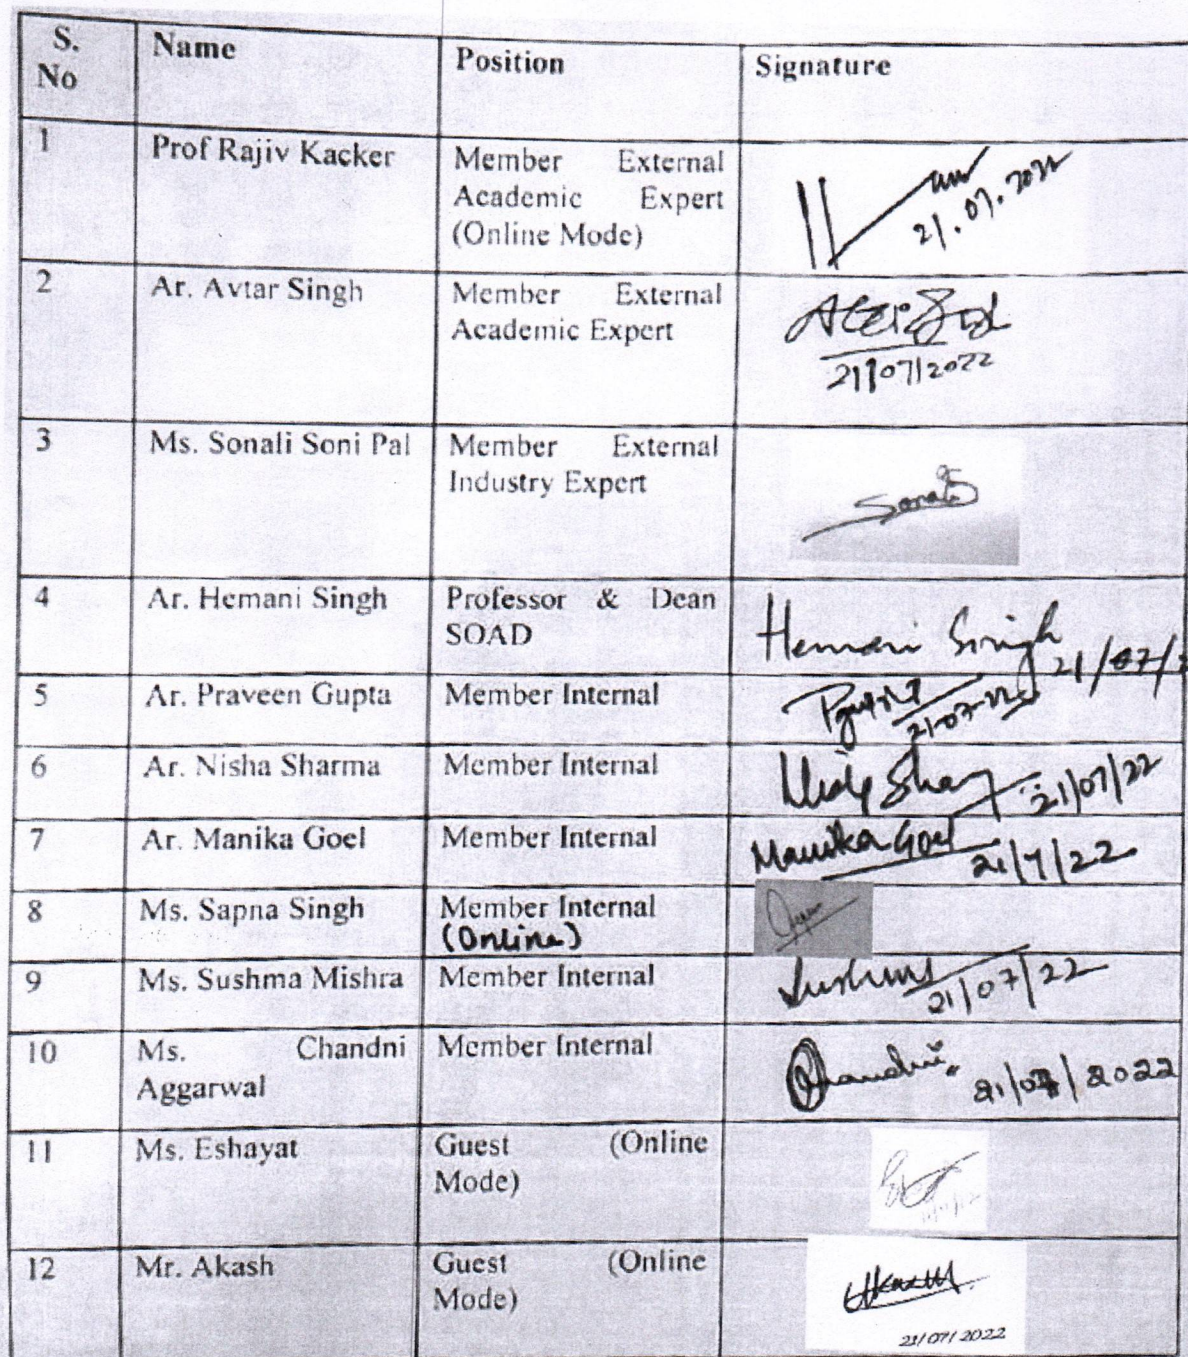 S. No Name Position Signature
1 Prof Rajiv Kacker Member External
Academic Expert
(Online Mode)
21.07.2022
2 Ar. Avtar Singh Member External
Academic Expert
21/07/2022
3 Ms. Sonali Soni Pal Member External
Industry Expert
Sonali
4 Ar. Hemani Singh Professor & Dean
SOAD
Hemani Singh 21/07/
5 Ar. Praveen Gupta Member Internal
21-07-22
6 Ar. Nisha Sharma Member Internal
21/07/22
7 Ar. Manika Goel Member Internal Manika Goel
21/7/22
8 Ms. Sapna Singh Member Internal
(Online)
9 Ms. Sushma Mishra Member Internal
21/07/22
10 Ms. Chandni
Aggarwal
Member Internal
Chandni 21/07/2022
11 Ms. Eshayat Guest (Online
Mode)
12 Mr. Akash Guest (Online
Mode)
Akash
21/07/2022